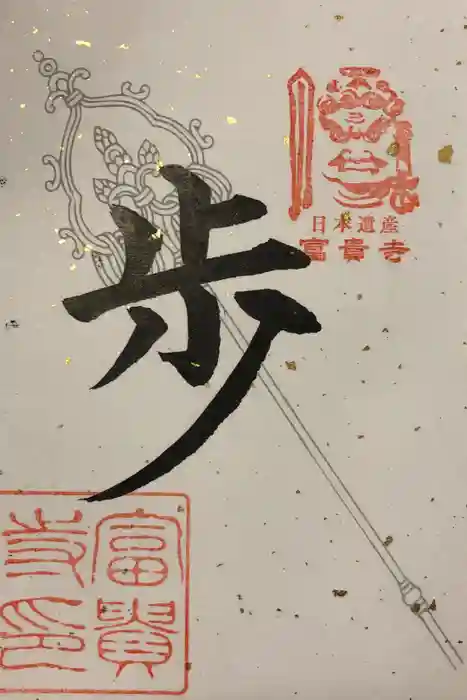 日本遺産
富貴寺
歩
富貴
寺印